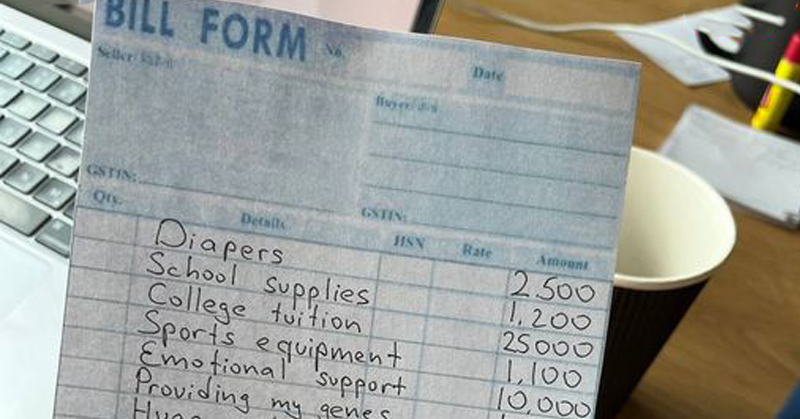 BILL FORM No.
Seller
Date
Buyer
GSTIN:
GSTIN:
Qty. Details HSN Rate Amount
Diapers 2,500
School supplies 1,200
College tuition 25000
Sports equipment 1,100
Emotional support 10,000
Providing my genes